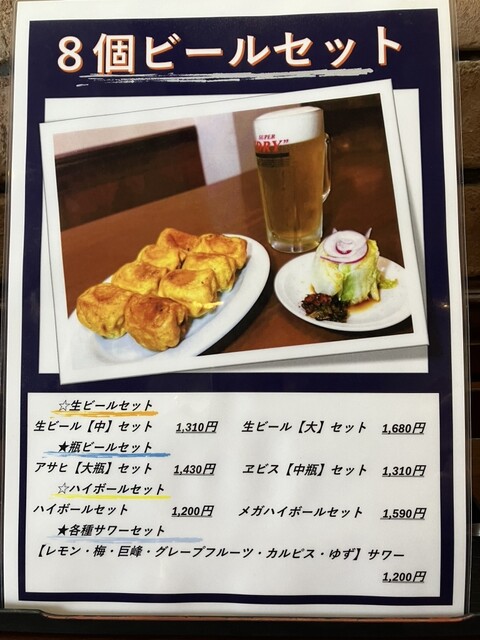 8個ビールセット
SUPER
"DRY"
☆生ビールセット
生ビール【中】セット 1,310円 生ビール【大】セット 1,680円
★瓶ビールセット
アサヒ【大瓶】セット 1,430円 ヱビス【中瓶】セット 1,310円
☆ハイボールセット
ハイボールセット 1,200円 メガハイボールセット 1,590円
★各種サワーセット
【レモン・梅・巨峰・グレープフルーツ・カルピス・ゆず】サワー
1,200円